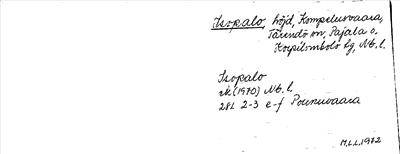 Isopalo, höjd, Kompelusvaara,
Tärendö sn, Pajala o.
Korpilombolo tg, Nb. l.
Isopalo
ek. (1970) Nb. l.
28L 2-3 e-f Pounuvaara
M.L.L. 1972